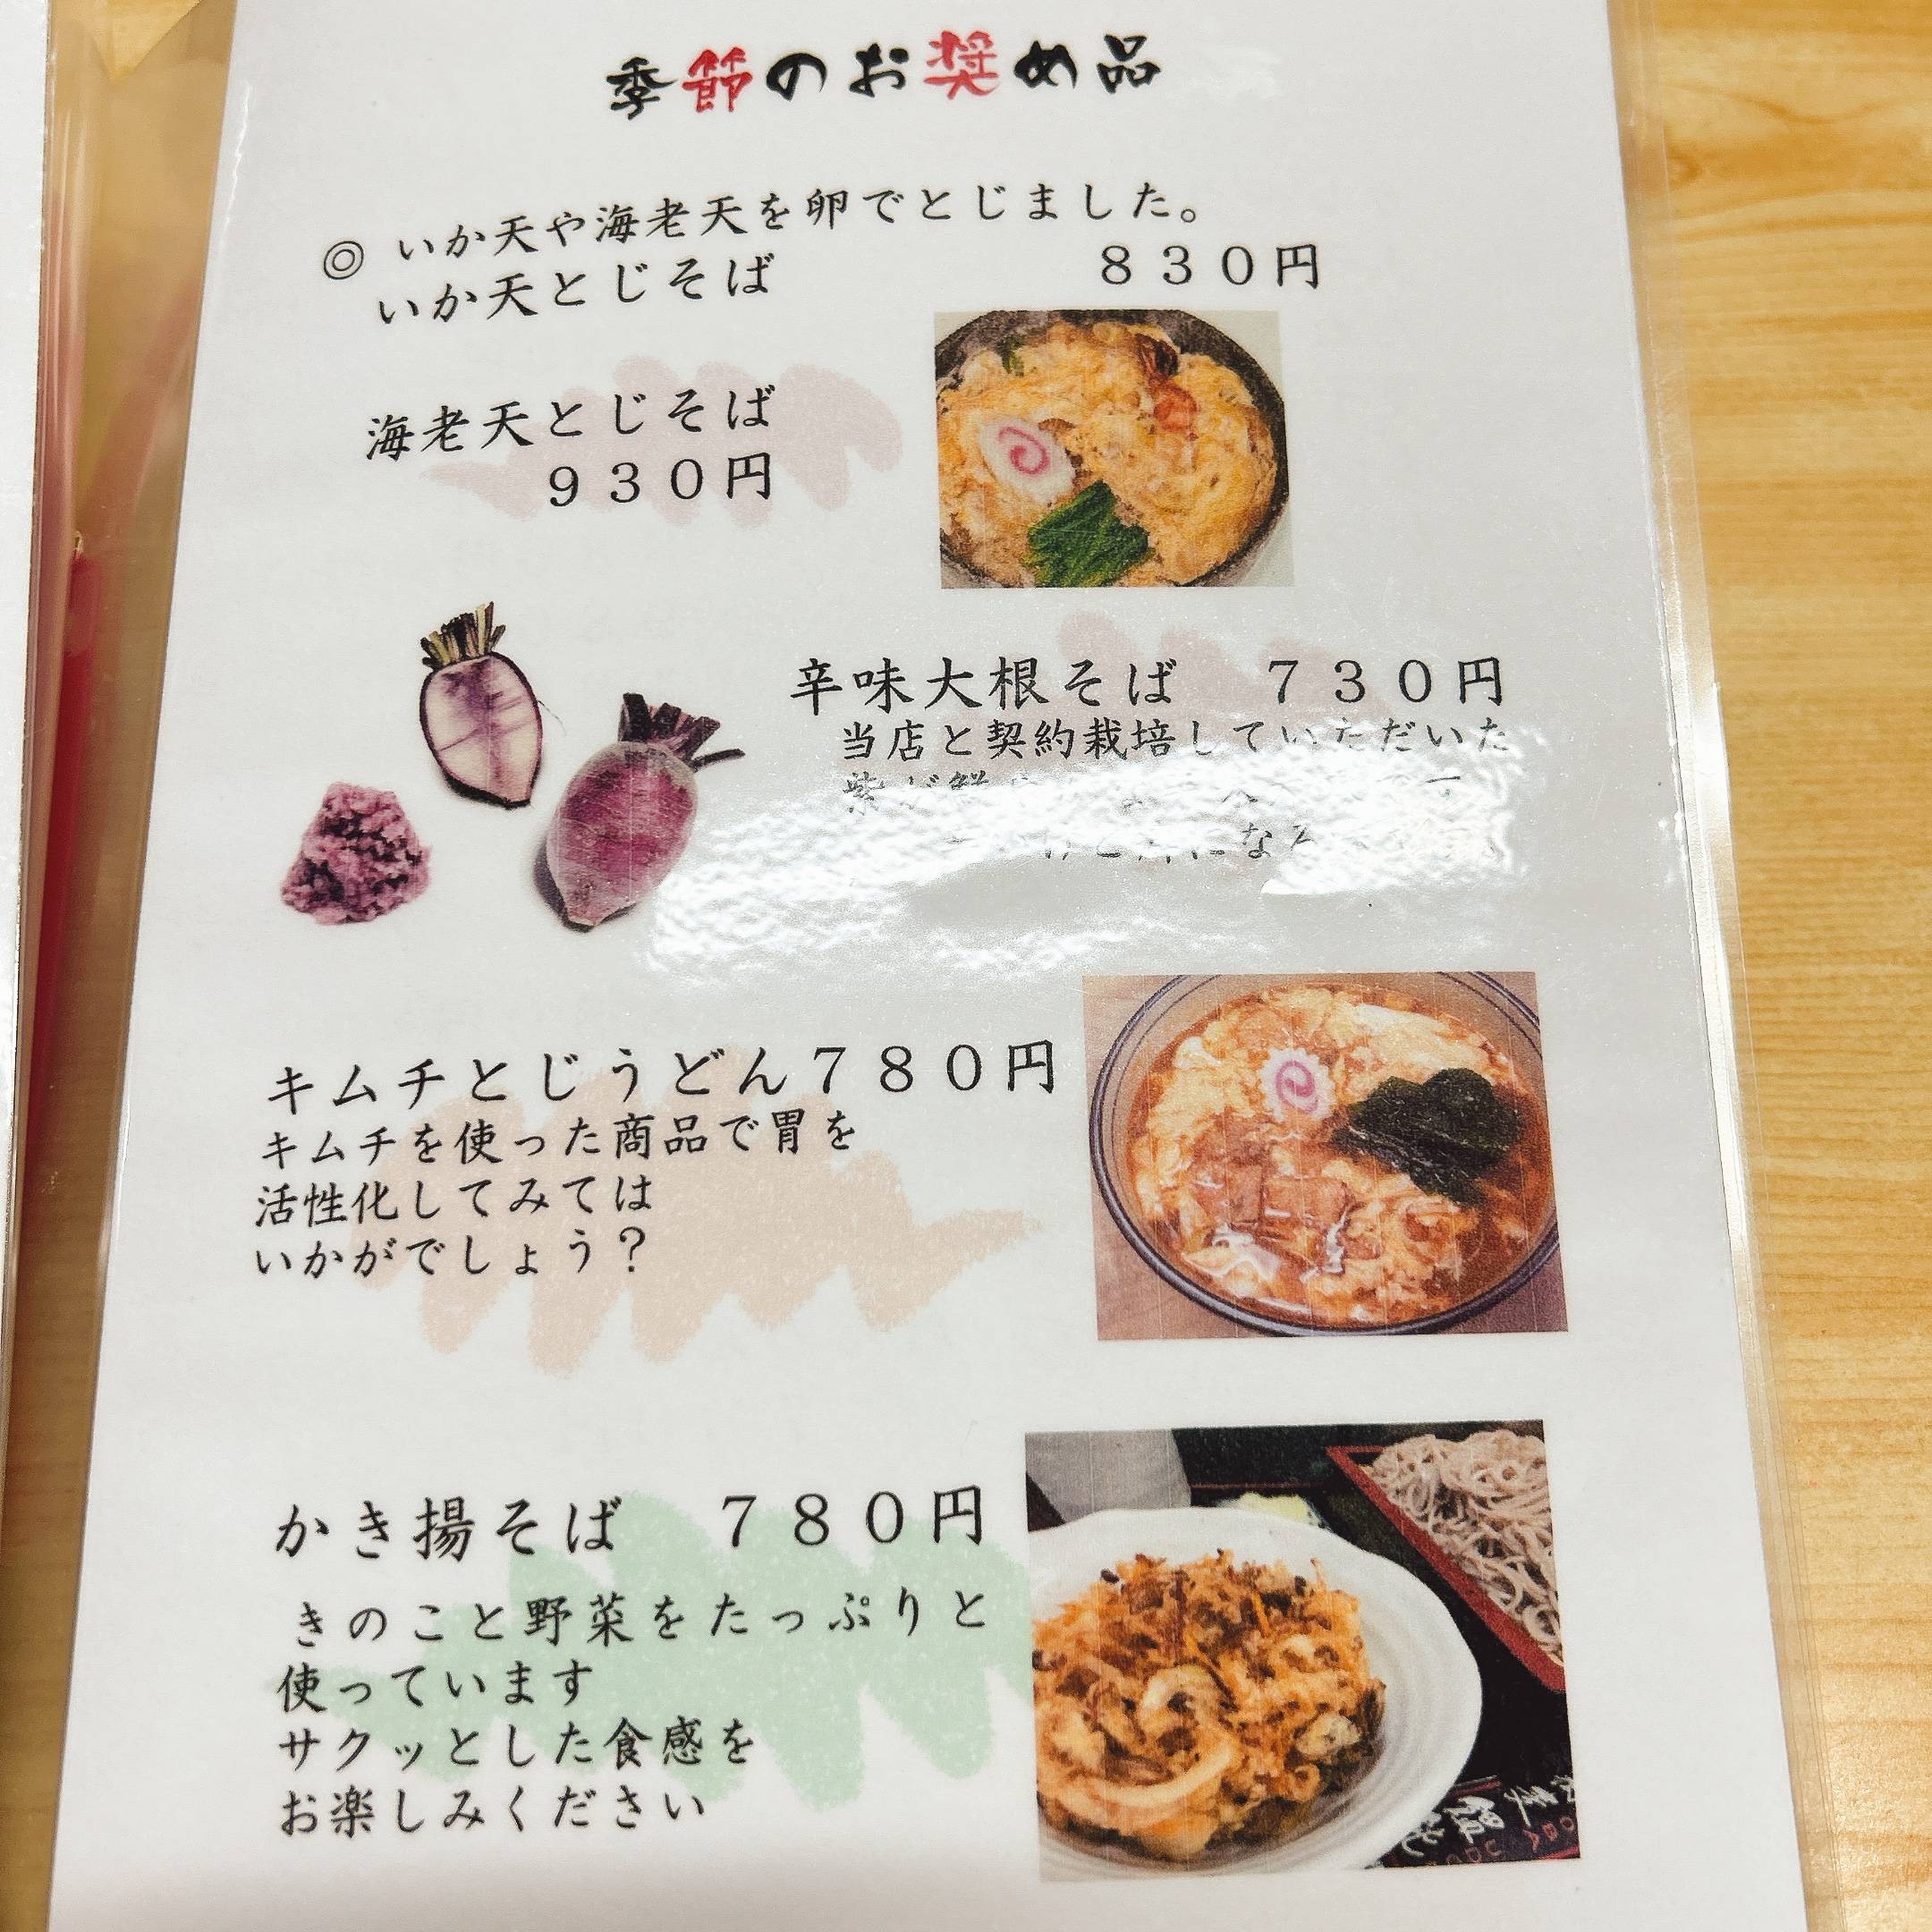 季節のお奨め品
いか天や海老天を卵でとじました。
◎
いか天とじそば ８３０円
海老天とじそば
９３０円
辛味大根そば ７３０円
当店と契約栽培していただいた
紫が鮮
になる
キムチとじうどん７８０円
キムチを使った商品で胃を
活性化してみては
いかがでしょう？
かき揚そば ７８０円
きのこと野菜をたっぷりと
使っています
サクッとした食感を
お楽しみください